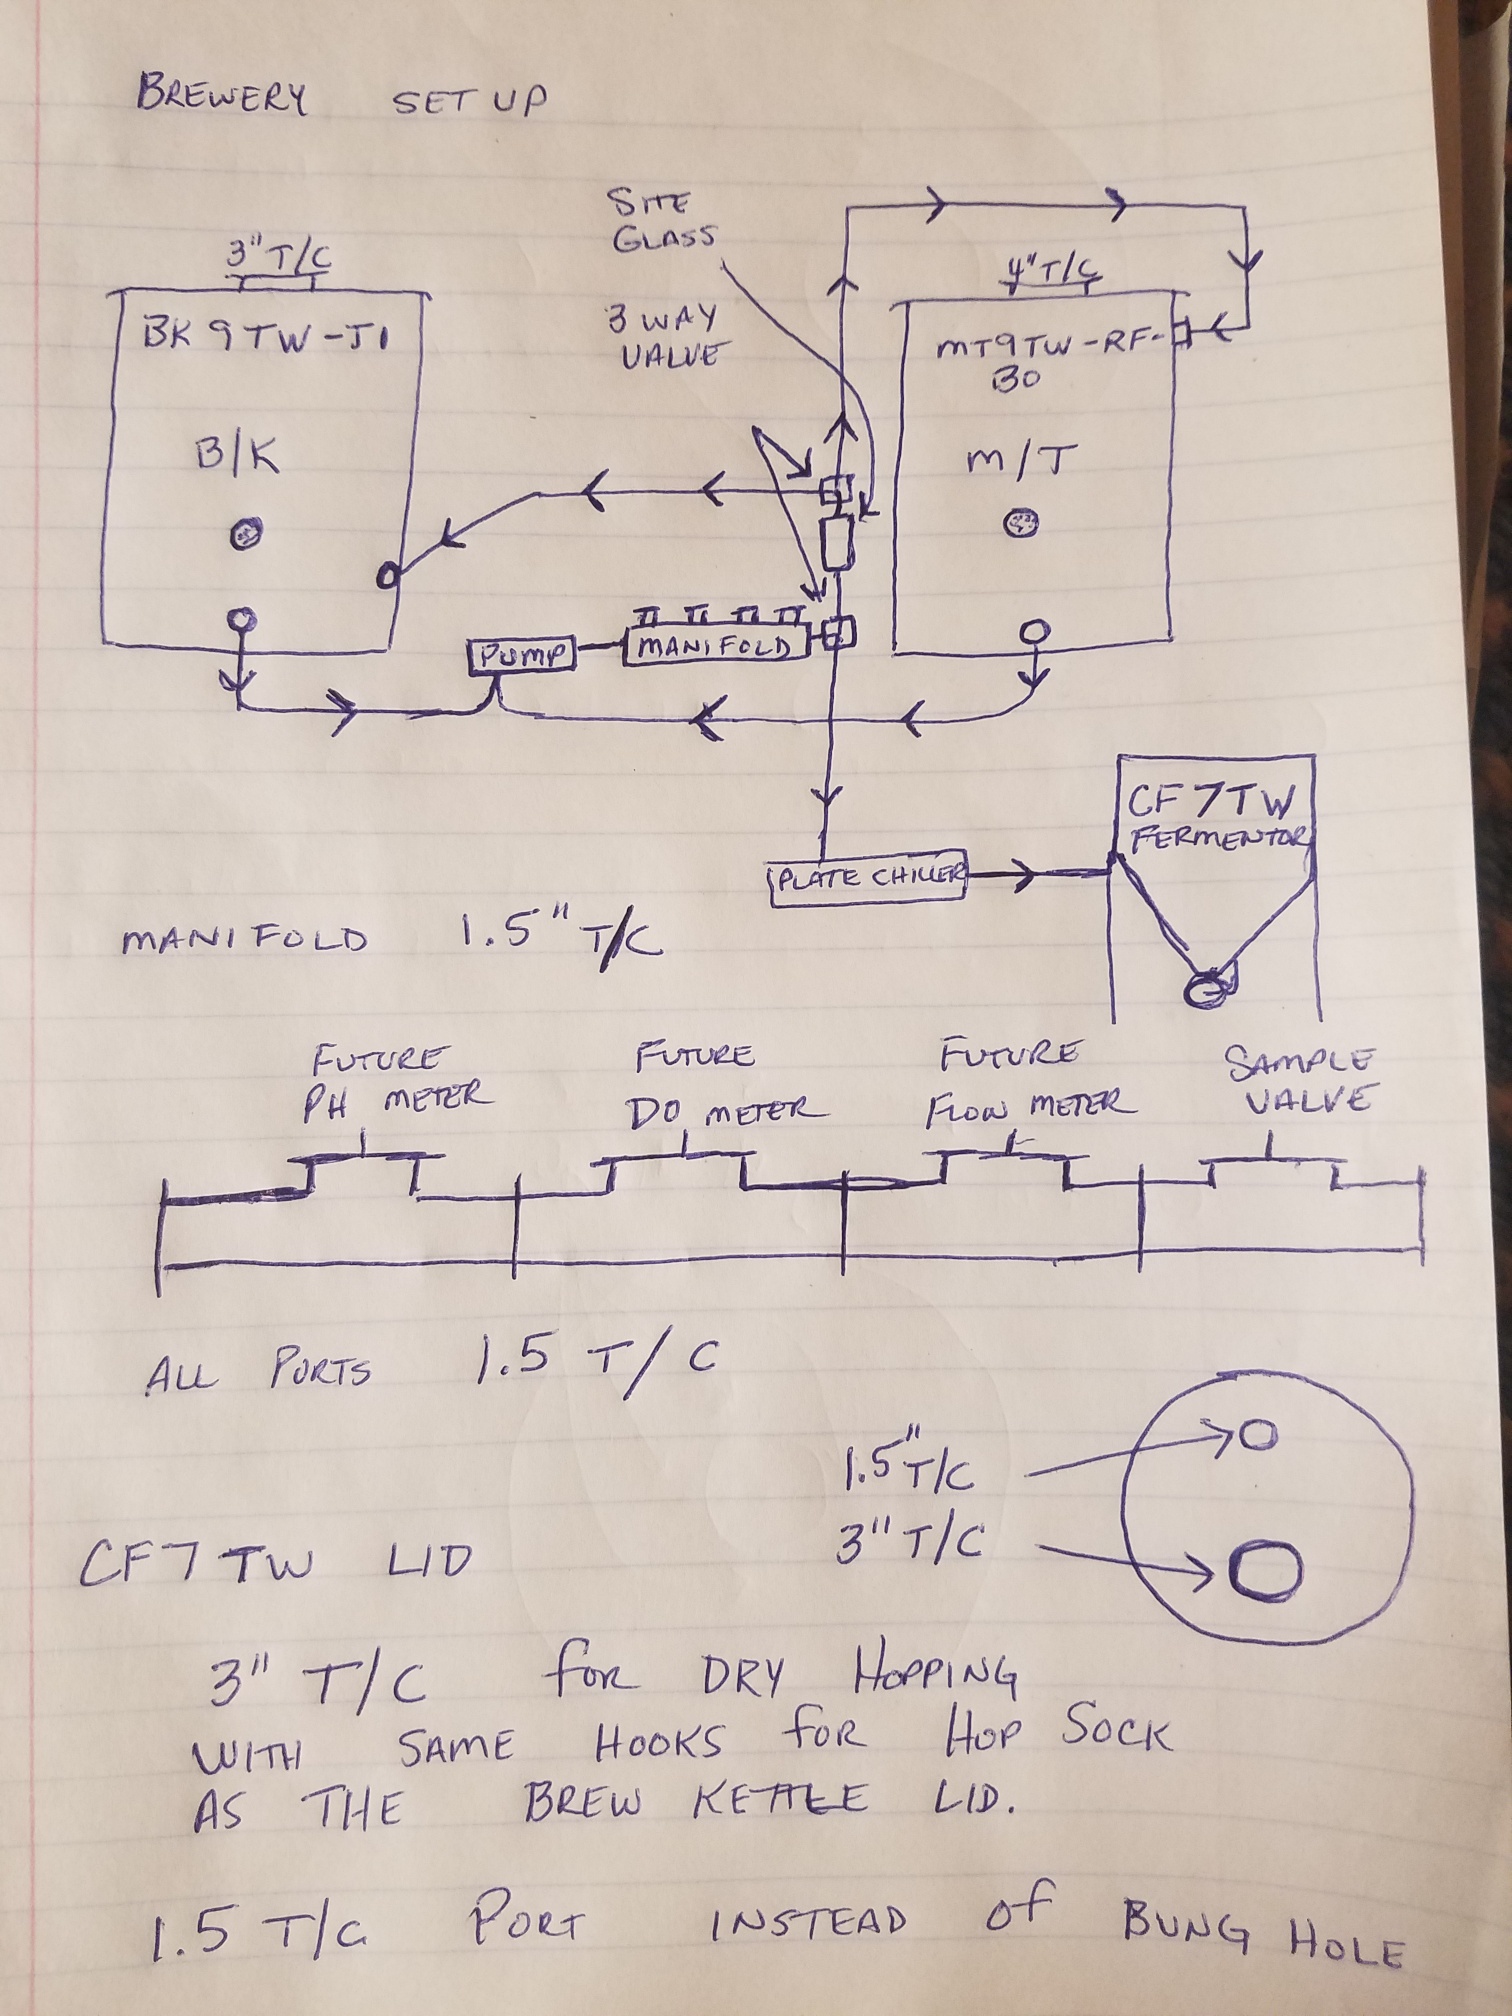 BREWERY SET UP
SITE
GLASS
3" T/C
4" T/C
3 WAY
VALVE
BK 9 TW-J1
MT9TW-RF-
BO
B/K
M/T
PUMP
MANIFOLD
CF 7 TW
FERMENTOR
PLATE CHILLER
MANIFOLD 1.5" T/C
FUTURE
PH METER
FUTURE
DO METER
FUTURE
FLOW METER
SAMPLE
VALVE
ALL PORTS 1.5 T/C
1.5" T/C
3" T/C
CF7 TW LID
3" T/C for DRY HOPPING
WITH SAME HOOKS for HOP SOCK
AS THE BREW KETTLE LID.
1.5 T/C PORT INSTEAD of BUNG HOLE